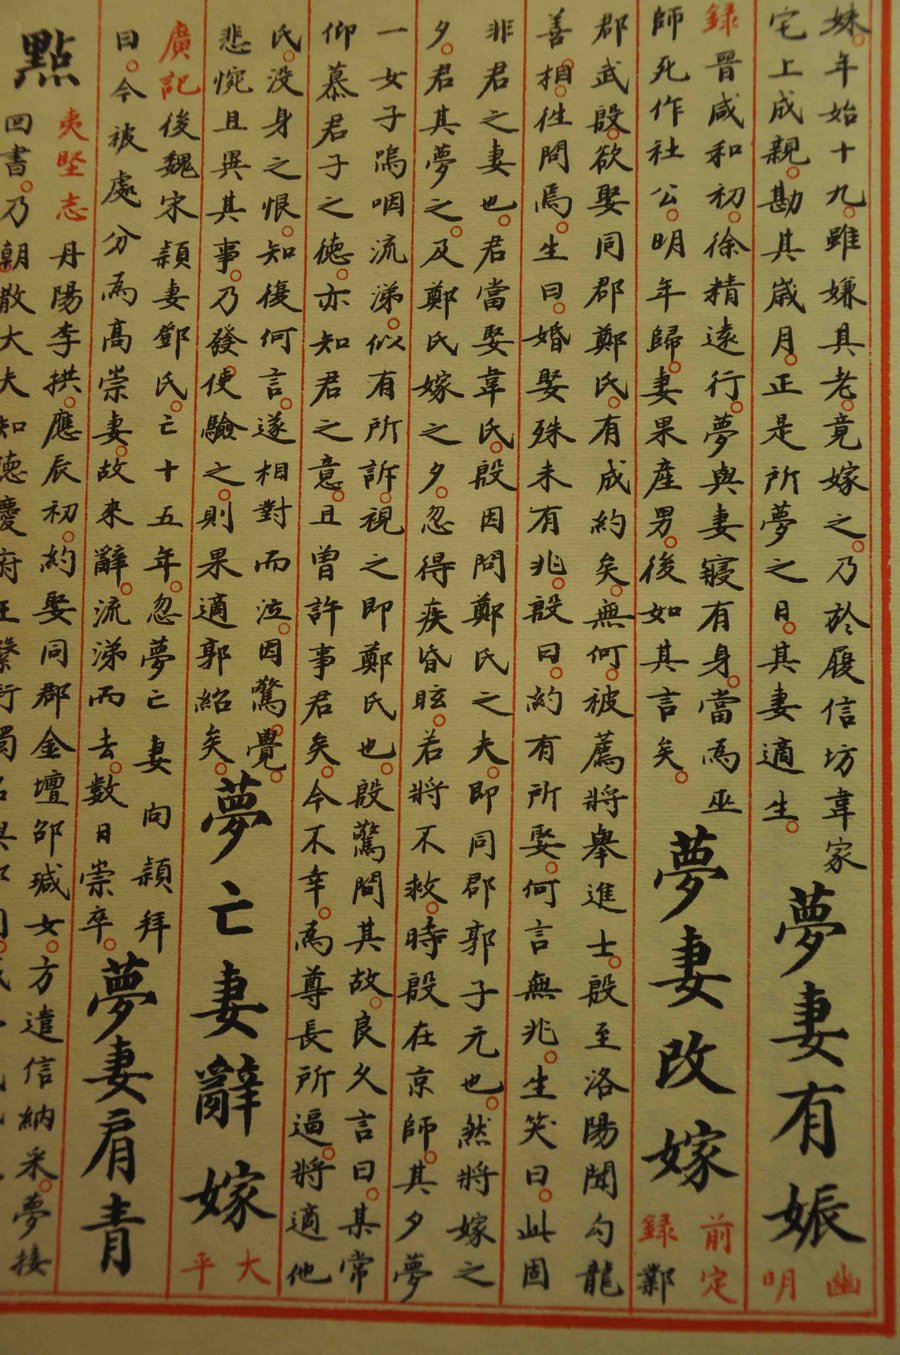 妹。年始十九。雖嫌其老。竟嫁之。乃於履信坊韋家
宅上成親。勘其歲月。正是所夢之日。其妻適生。
夢妻有娠
幽明
録晉咸和初。徐精遠行。夢與妻寢有身。當為巫
師死作社公。明年歸。妻果產男。後如其言矣。
夢妻改嫁
前定
録鄴
郡武殷。欲娶同郡鄭氏。有成約矣。無何。被薦將舉進士。殷至洛陽聞勾龍
善相。往問焉。生曰。婚娶殊未有兆。殷曰。約有所娶。何言無兆。生笑曰。此固
非君之妻也。君當娶韋氏。殷因問鄭氏之夫。即同郡郭子元也。然將嫁之
夕。君其夢之。及鄭氏嫁之夕。忽得疾昏眩。若將不救。時殷在京師。其夕夢
一女子嗚咽流涕。似有所訴。視之即鄭氏也。殷驚問其故。良久言曰。某常
仰慕君子之德。亦知君之意。且曾許事君矣。今不幸。為尊長所逼。將適他
氏。没身之恨。知復何言。遂相對而泣。因驚覺。
悲惋且異其事。乃發使驗之。則果適郭紹矣。
夢亡妻辭嫁
大
平
廣記後魏宋穎妻鄧氏。亡十五年。忽夢亡妻向穎拜
曰。今被處分為高崇妻。故來辭。流涕而去。數日崇卒。
夢妻肩青
點
夷堅志丹陽李拱。應辰初。約娶同郡金壇邵瑊女。方遣信納采。夢接
回書。乃朝散大夫知德慶府王